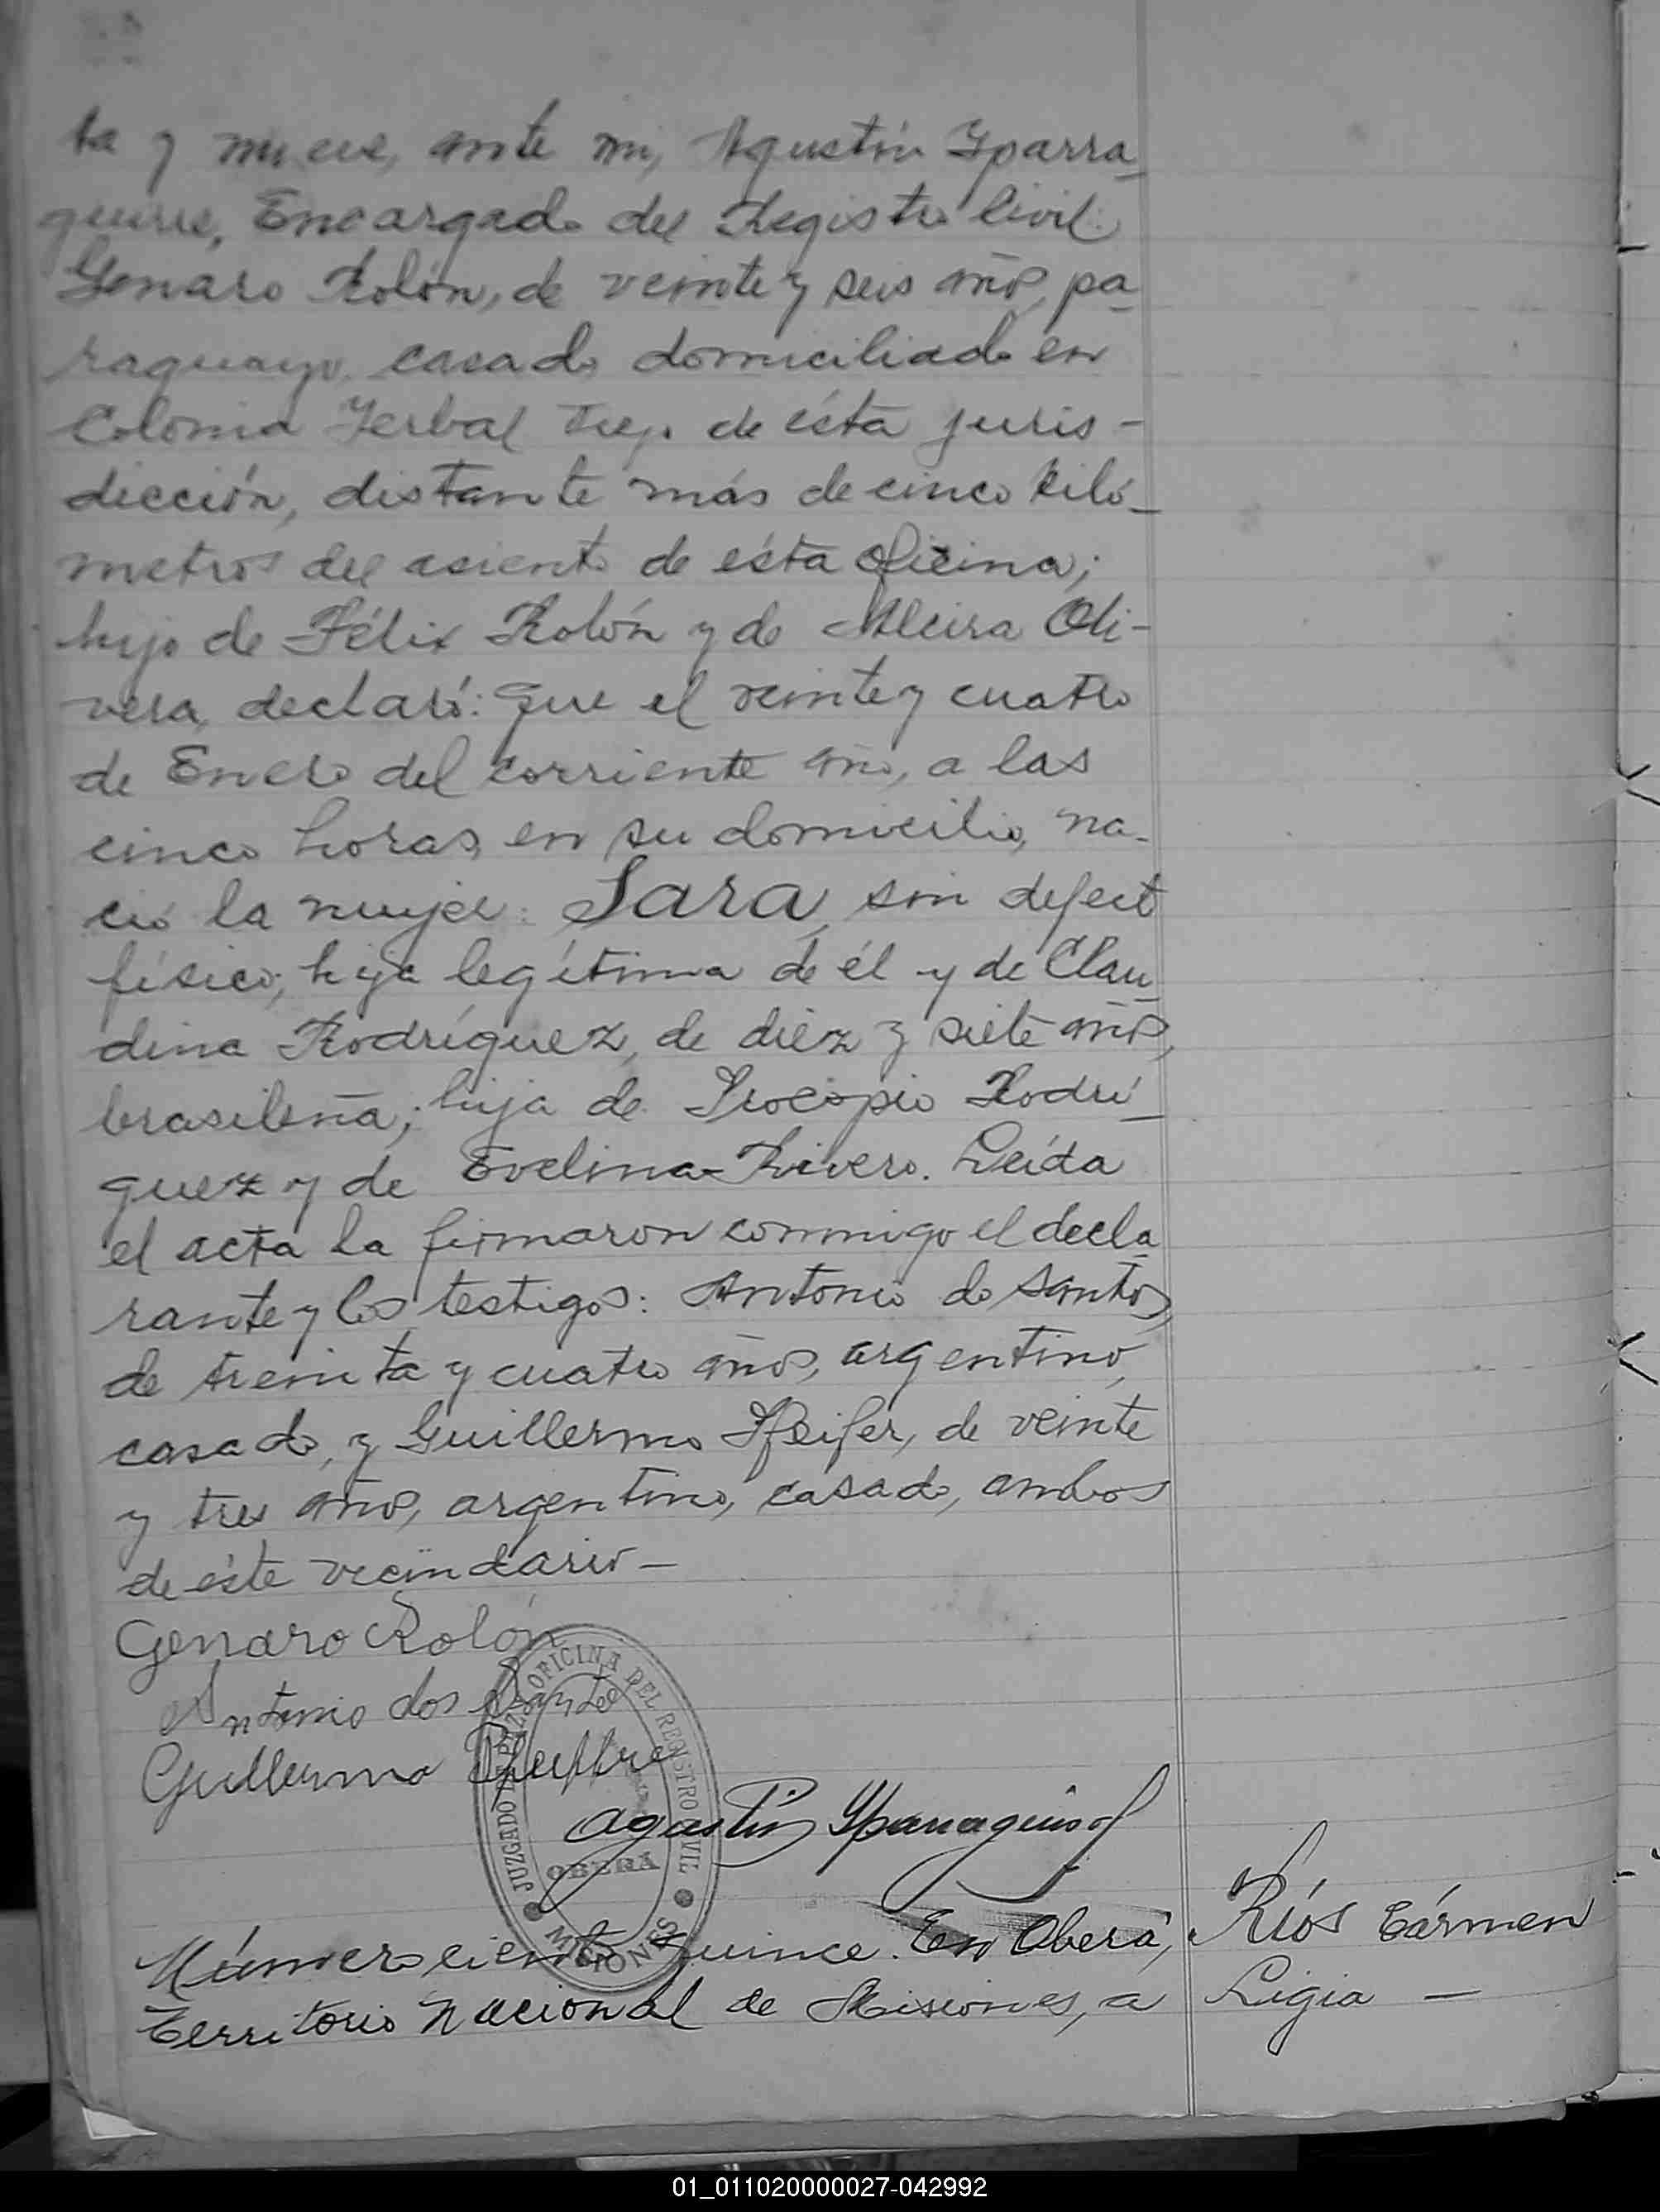 ta y nueve, ante mi, Agustín Yparra_
guirre, Encargado del Registro Civil:
Genaro Rolón, de veinte y seis años, pa_
raguayo, casado, domiciliado en
Colonia Yerbal Viejo de ésta juris-
dicción, distante más de cinco kiló_
metros del asiento de ésta oficina;
hijo de Félix Rolón y de Oli-
vera, declaró: que el veinte y cuatro
de Enero del corriente año, a las
cinco horas, en su domicilio, na-
ció la mujer: Sara, sin defecto
físico; hija legítima de él y de Clau_
dina Rodríguez, de diez y siete años,
brasileña; hija de Procopio Rodrí_
guez y de Evelina Rivero. Leída
el acta la firmaron conmigo el decla_
rante y los testigos: Antonio do Santos,
de treinta y cuatro años, argentino,
casado, y Guillermo Pfeifer, de veinte
y tres años, argentino, casado, ambos
de éste vecindario-
Genaro Rolón
Antonio dos Santos
Guillermo
JUZGADO DE PAZ Y OFICINA DEL REGISTRO CIVIL
OBERÁ
MISIONES
Agustín Yparraguirre
Número ciento quince. En Oberá,
Territorio Nacional de Misiones, a
Ríos Cármen
Ligia -
01_011020000027-042992